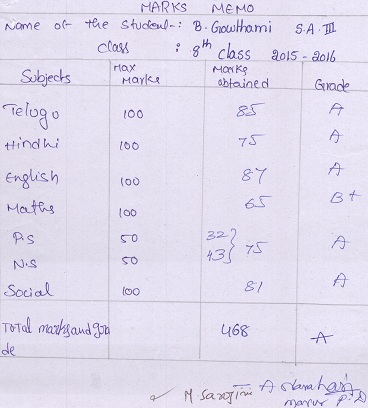 MARKS MEMO
Name of the Student-: B. Gowthami S.A. III
Class : 8th class 2015-2016
Subjects Max Marks Marks obtained Grade
Telugo 100 85 A
Hindhi 100 75 A
English 100 87 A
Maths 100 65 B+
P.S 50 32 } 75 A
N.S 50 43
Social 100 81 A
Total marks and gra 468 A
de
M Sarojini A